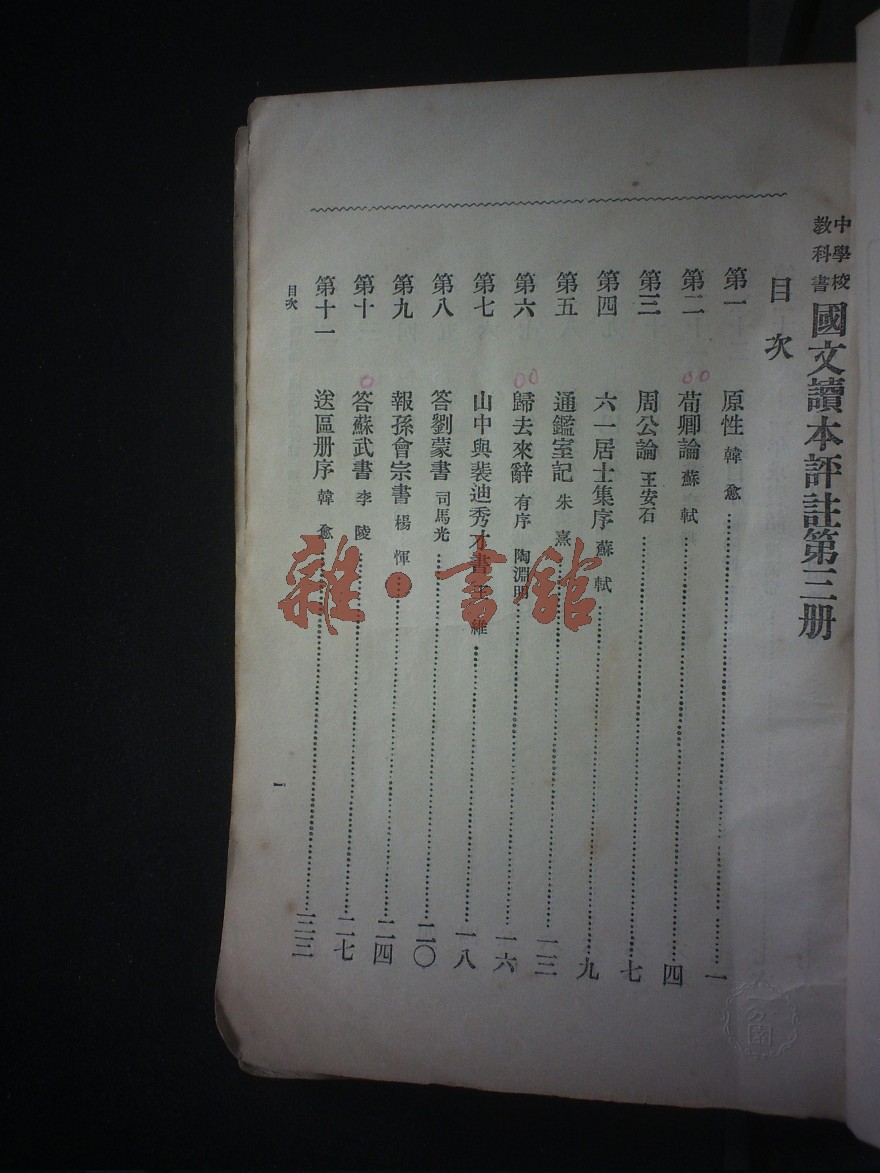 中學校教科書 國文讀本評註第三册
目次
第一 原性 韓愈 一
第二 荀卿論 蘇軾 四
第三 周公論 王安石 七
第四 六一居士集序 蘇軾 九
第五 通鑑室記 朱熹 一三
第六 歸去來辭 有序 陶淵明 一六
第七 山中與裴迪秀才書 王維 一八
第八 答劉蒙書 司馬光 二〇
第九 報孫會宗書 楊惲 二四
第十 答蘇武書 李陵 二七
第十一 送區册序 韓愈 三三
目次
一
雜·書館